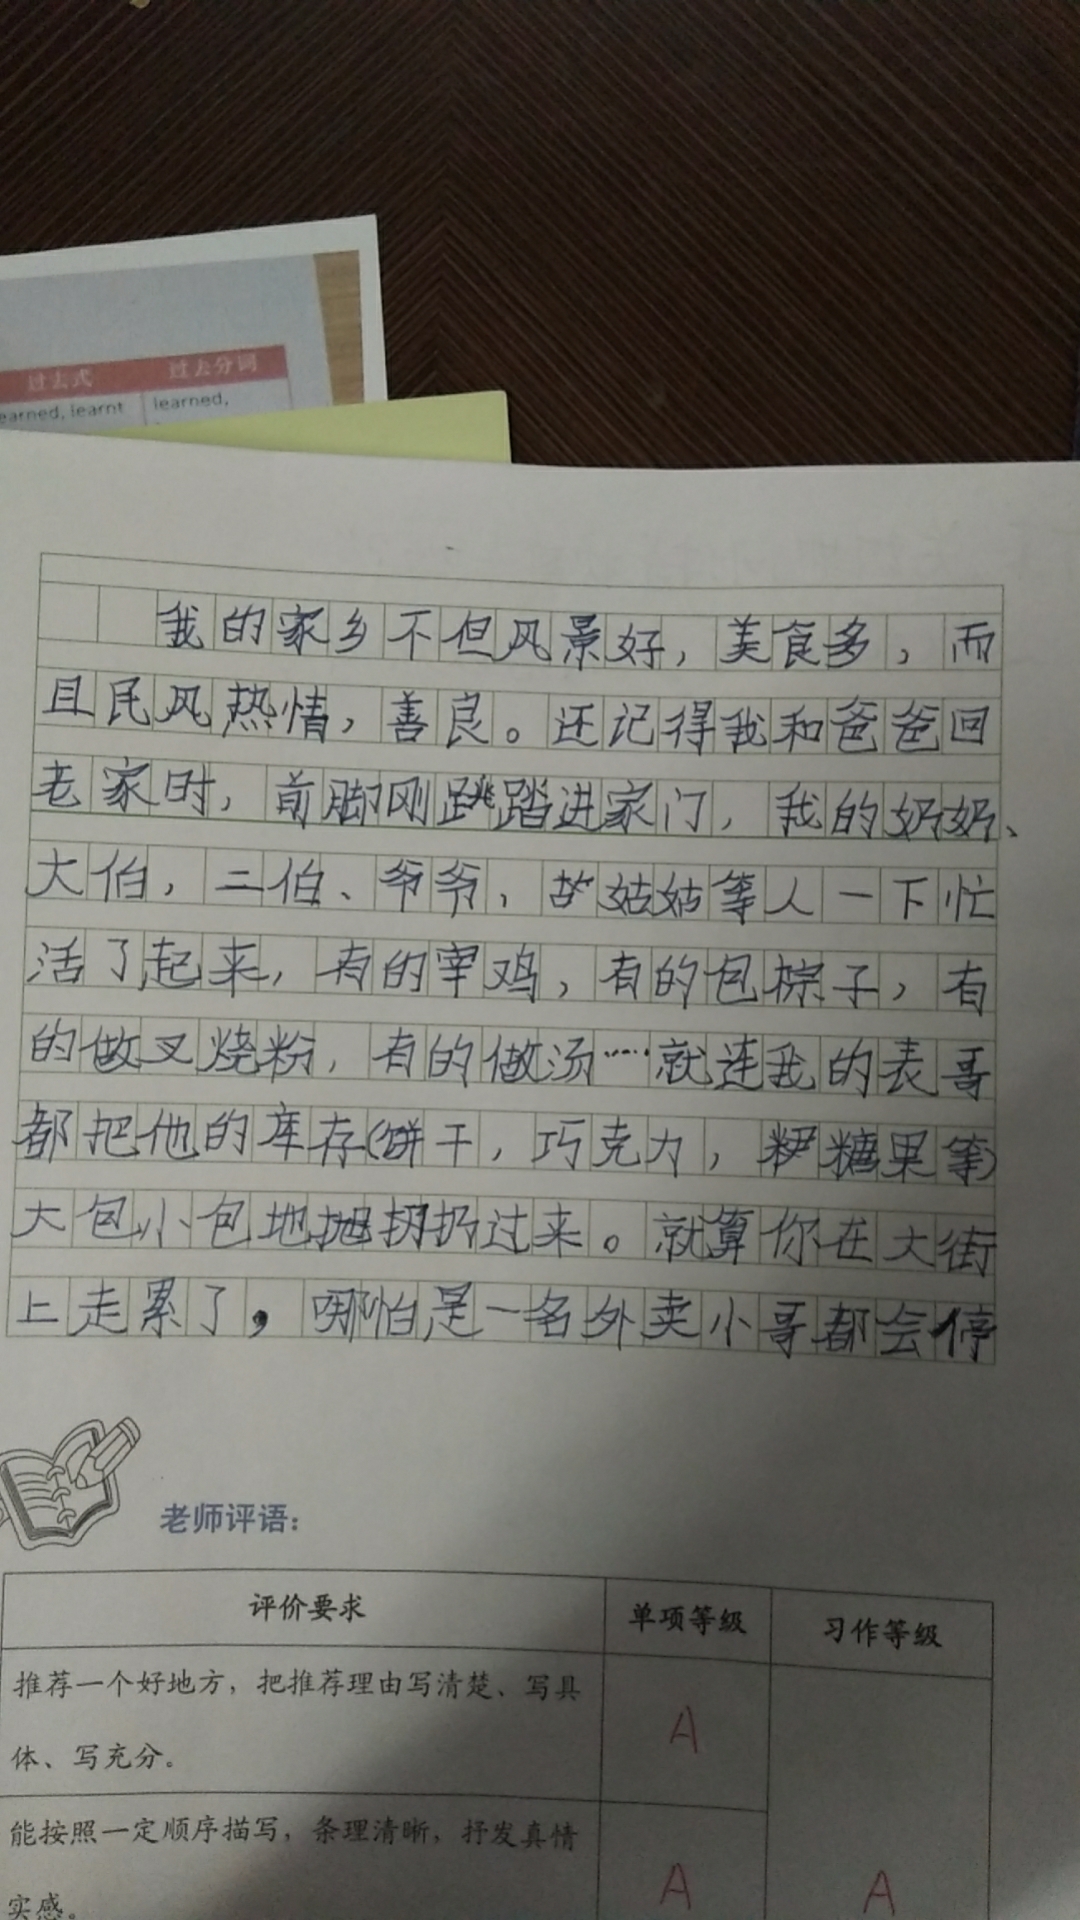 过去式 过去分词
earned, learnt learned,
我的家乡不但风景好，美食多，而
且民风热情，善良。还记得我和爸爸回
老家时，前脚刚跳踏进家门，我的奶奶、
大伯，二伯、爷爷，姑姑等人一下忙
活了起来，有的宰鸡，有的包棕子，有
的做叉烧粉，有的做汤……就连我的表哥
都把他的库存(饼干，巧克力，糖果等)
大包小包地抛扔扔过来。就算你在大街
上走累了，哪怕是一名外卖小哥都会停
老师评语：
评价要求 单项等级 习作等级
推荐一个好地方，把推荐理由写清楚、写具
体、写充分。 A
能按照一定顺序描写，条理清晰，抒发真情
实感。 A A